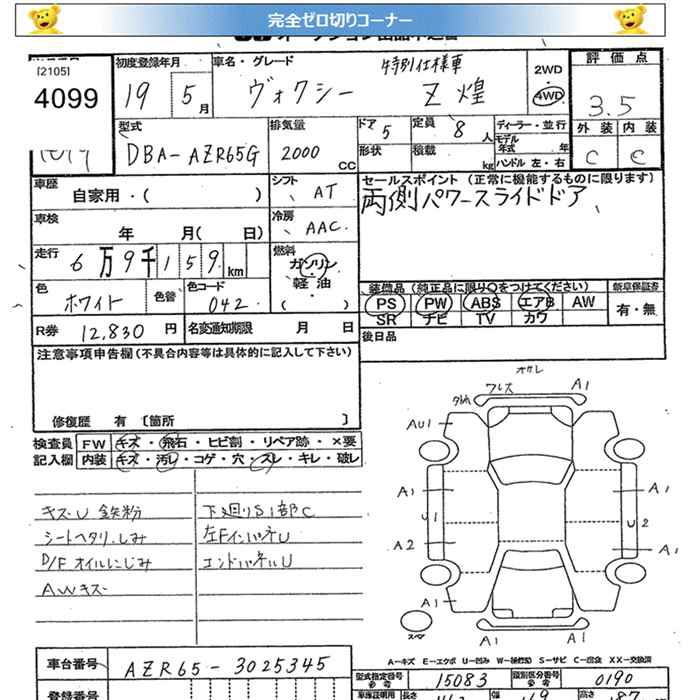 完全ゼロ切りコーナー
[2105]
4099
初度登録年月
19 5 月
車名・グレード
特別仕様車
ヴォクシー Z煌
2WD
4WD
評価点
3.5
外装 内装
C C
型式
DBA-AZR65G
排気量
2000 CC
ドア 5
形状
定員 8 人
積載 kg
ディーラー・並行
モデル年式 年
ハンドル 左・右
車歴
自家用・( )
シフト AT
セールスポイント (正常に機能するものに限ります)
両側パワースライドドア
車検
年 月( 日)
冷房 AAC
走行
6万9千159 km
燃料
ガソリン
軽油
( )
色 ホワイト
色替
色コード 042
装備品 (純正品に限り○をつけてください)
新車保証券
PS PW ABS エアB AW
SR ナビ TV カワ
有・無
R券 12,830 円
名変通知期限 月 日
後日品
注意事項申告欄(不具合内容等は具体的に記入して下さい)
修復歴 有 〔箇所 〕
検査員記入欄
FW キズ・飛石・ヒビ割・リペア跡・×要
内装 キズ・汚れ・コゲ・穴・スレ・キレ・破レ
キズU 鉄粉
シートヘタリ、しみ
D/F オイルにじみ
AWキズ
下廻りS1部C
左FインパネU
エンドパネルU
ワレス A1
AU1 A1
A1 A1
U1 U2
A2 A1
A1 A1
スペア
A1 A1
A-キズ E-エクボ U-凹み W-補修跡 S-サビ C-腐食 XX-交換済
車台番号
AZR65-3025345
型式指定番号 参考
15083
類別区分番号 参考
0190
登録番号